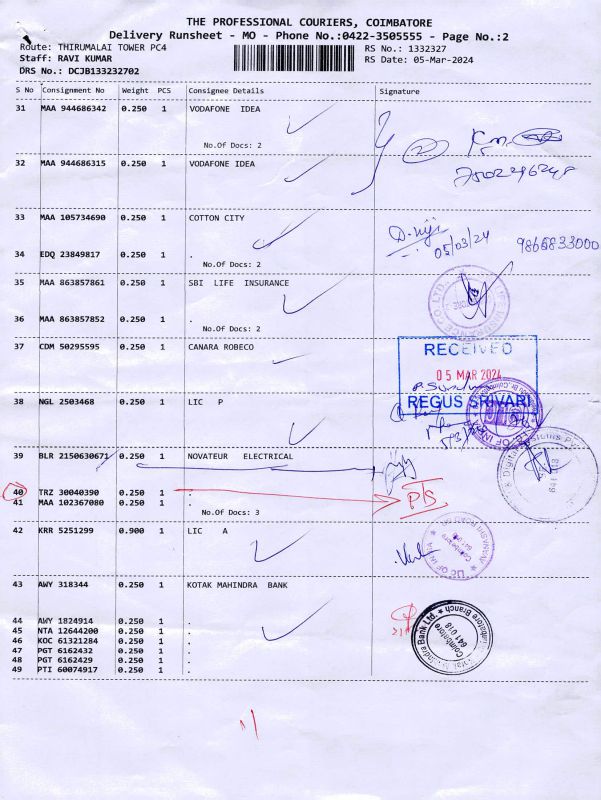 THE PROFESSIONAL COURIERS, COIMBATORE
Delivery Runsheet - MO - Phone No.:0422-3505555 - Page No.:2
Route: THIRUMALAI TOWER PC4 RS No.: 1332327
Staff: RAVI KUMAR RS Date: 05-Mar-2024
DRS No.: DCJB133232702
S No Consignment No Weight PCS Consignee Details Signature
31 MAA 944686342 0.250 1 VODAFONE IDEA
No.Of Docs: 2
2
32 MAA 944686315 0.250 1 VODAFONE IDEA
33 MAA 105734690 0.250 1 COTTON CITY
05/03/24
9866833000
34 EDQ 23849817 0.250 1 .
No.Of Docs: 2
35 MAA 863857861 0.250 1 SBI LIFE INSURANCE
36 MAA 863857852 0.250 1 .
No.Of Docs: 2
37 CDM 50295595 0.250 1 CANARA ROBECO
RECEIVED
05 MAR 2024
REGUS SRIVARI
38 NGL 2503468 0.250 1 LIC P
39 BLR 2150630671 0.250 1 NOVATEUR ELECTRICAL
641 018
40 TRZ 30040390 0.250 1 .
PTS
41 MAA 102367080 0.250 1 .
No.Of Docs: 3
42 KRR 5251299 0.900 1 LIC A
43 AWY 318344 0.250 1 KOTAK MAHINDRA BANK
44 AWY 1824914 0.250 1 .
45 NTA 12644200 0.250 1 .
46 KOC 61321284 0.250 1 .
47 PGT 6162432 0.250 1 .
48 PGT 6162429 0.250 1 .
49 PTI 60074917 0.250 1 .
Bank Ltd. * Coimbatore Branch
Coimbatore
641 018